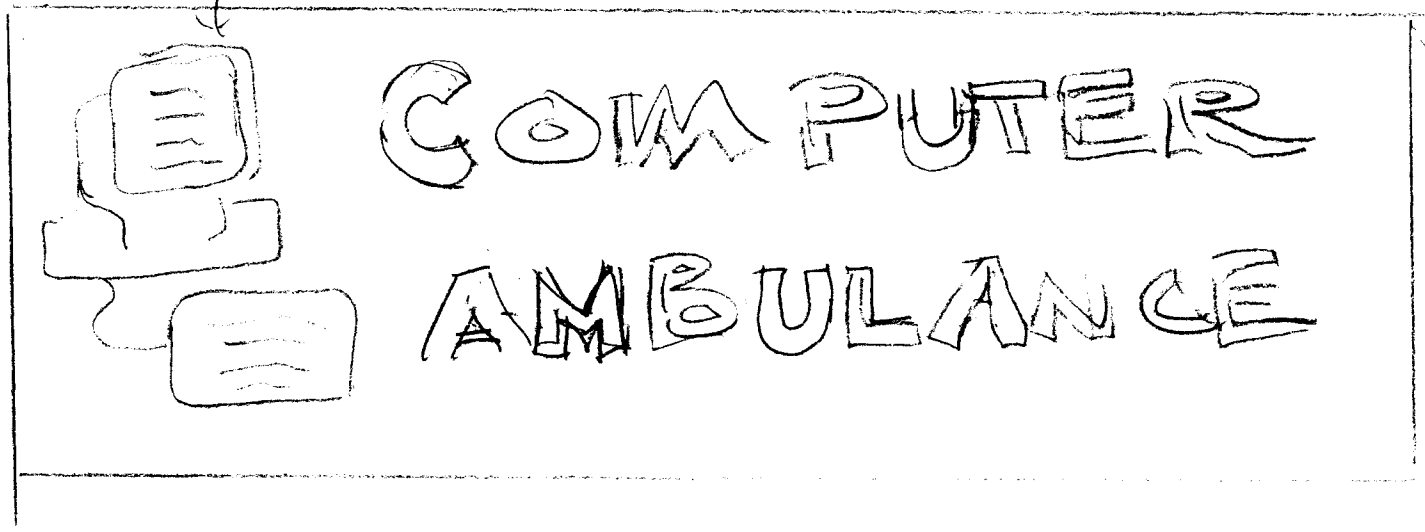 COMPUTER
AMBULANCE